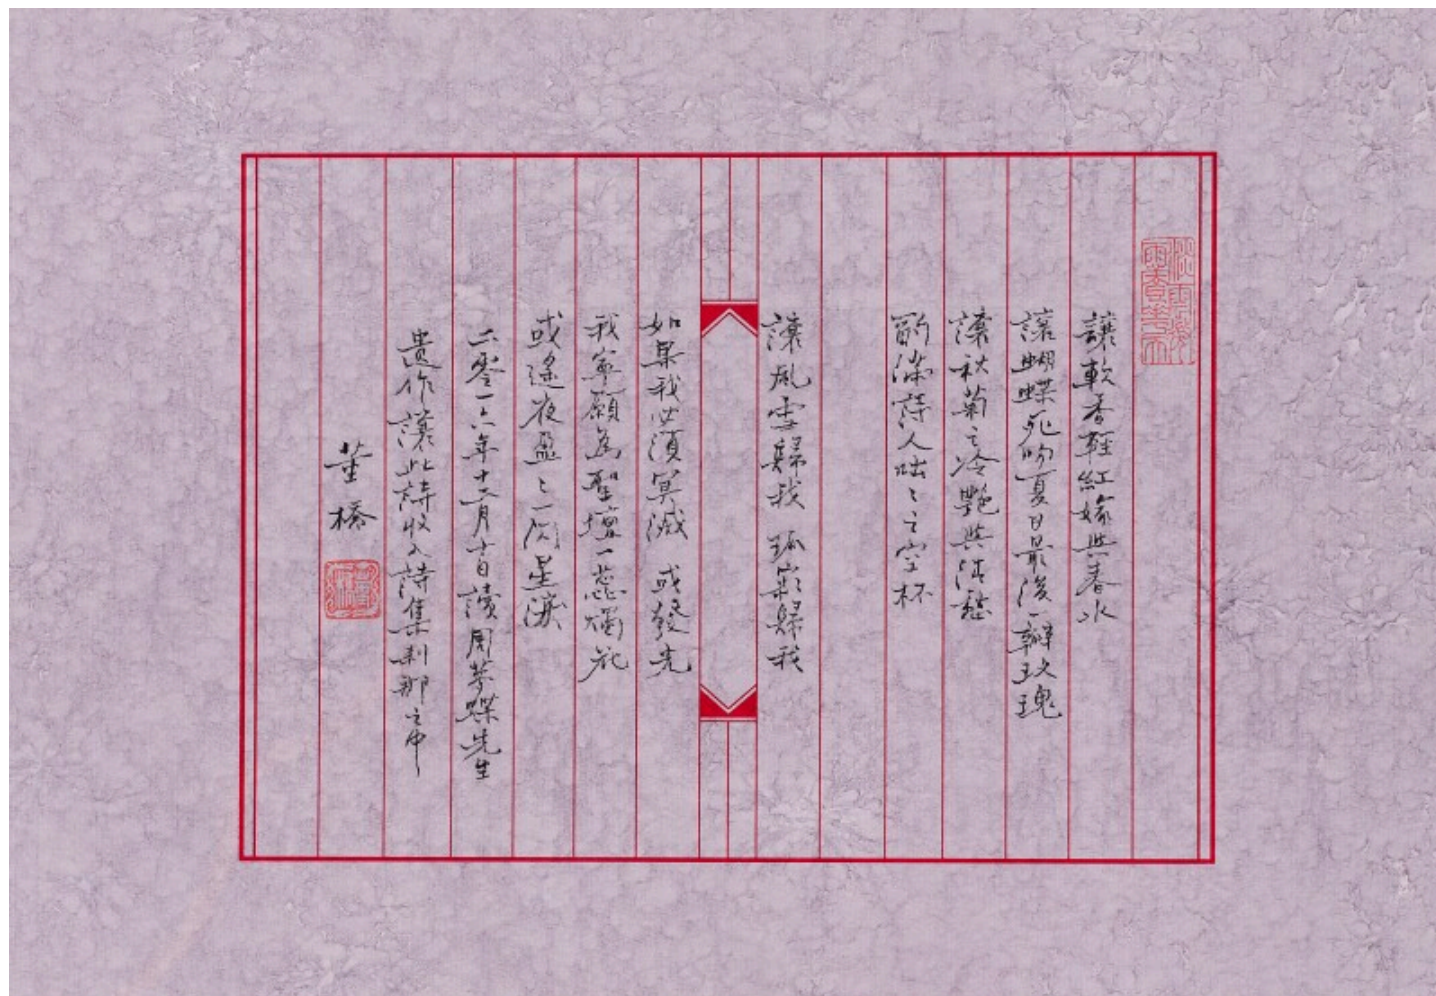 讓軟香輕紅嫁與春水
讓蝴蝶死吻夏日最後一瓣玫瑰
讓秋菊之冷艷與清愁
酌滿詩人咄咄之空杯
讓風雪歸我 孤寂歸我
如果我必須冥滅 或發光
我寧願為聖壇一蕊燭花
或遙夜盈盈一閃星淚
二零一六年十二月 讀周夢蝶先生
遺作讓此詩收入詩集剎那之中
董橋